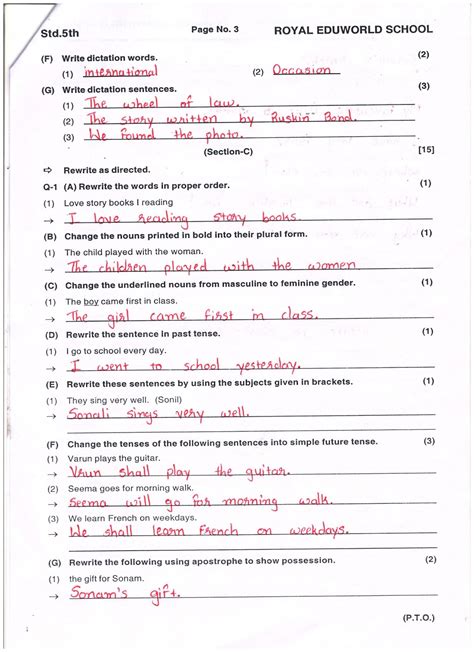 Std.5th Page No. 3 ROYAL EDUWORLD SCHOOL
(F) Write dictation words. (2)
(1) international (2) Occasion
(G) Write dictation sentences. (3)
(1) The wheel of law.
(2) The story written by Ruskin Bond.
(3) We found the photo.
(Section-C) [15]
⇨ Rewrite as directed.
Q-1 (A) Rewrite the words in proper order. (1)
(1) Love story books I reading
→ I love reading story books.
(B) Change the nouns printed in bold into their plural form. (1)
(1) The child played with the woman.
→ The children played with the women
(C) Change the underlined nouns from masculine to feminine gender. (1)
(1) The boy came first in class.
→ The girl came first in class.
(D) Rewrite the sentence in past tense. (1)
(1) I go to school every day.
→ I went to school yesterday.
(E) Rewrite these sentences by using the subjects given in brackets. (1)
(1) They sing very well. (Sonil)
→ Sonali sings very well.
(F) Change the tenses of the following sentences into simple future tense. (3)
(1) Varun plays the guitar.
→ Vrun shall play the guitar.
(2) Seema goes for morning walk.
→ Seema will go for morning walk.
(3) We learn French on weekdays.
→ We shall learn French on weekdays.
(G) Rewrite the following using apostrophe to show possession. (2)
(1) the gift for Sonam.
→ Sonam's gift.
(P.T.O.)